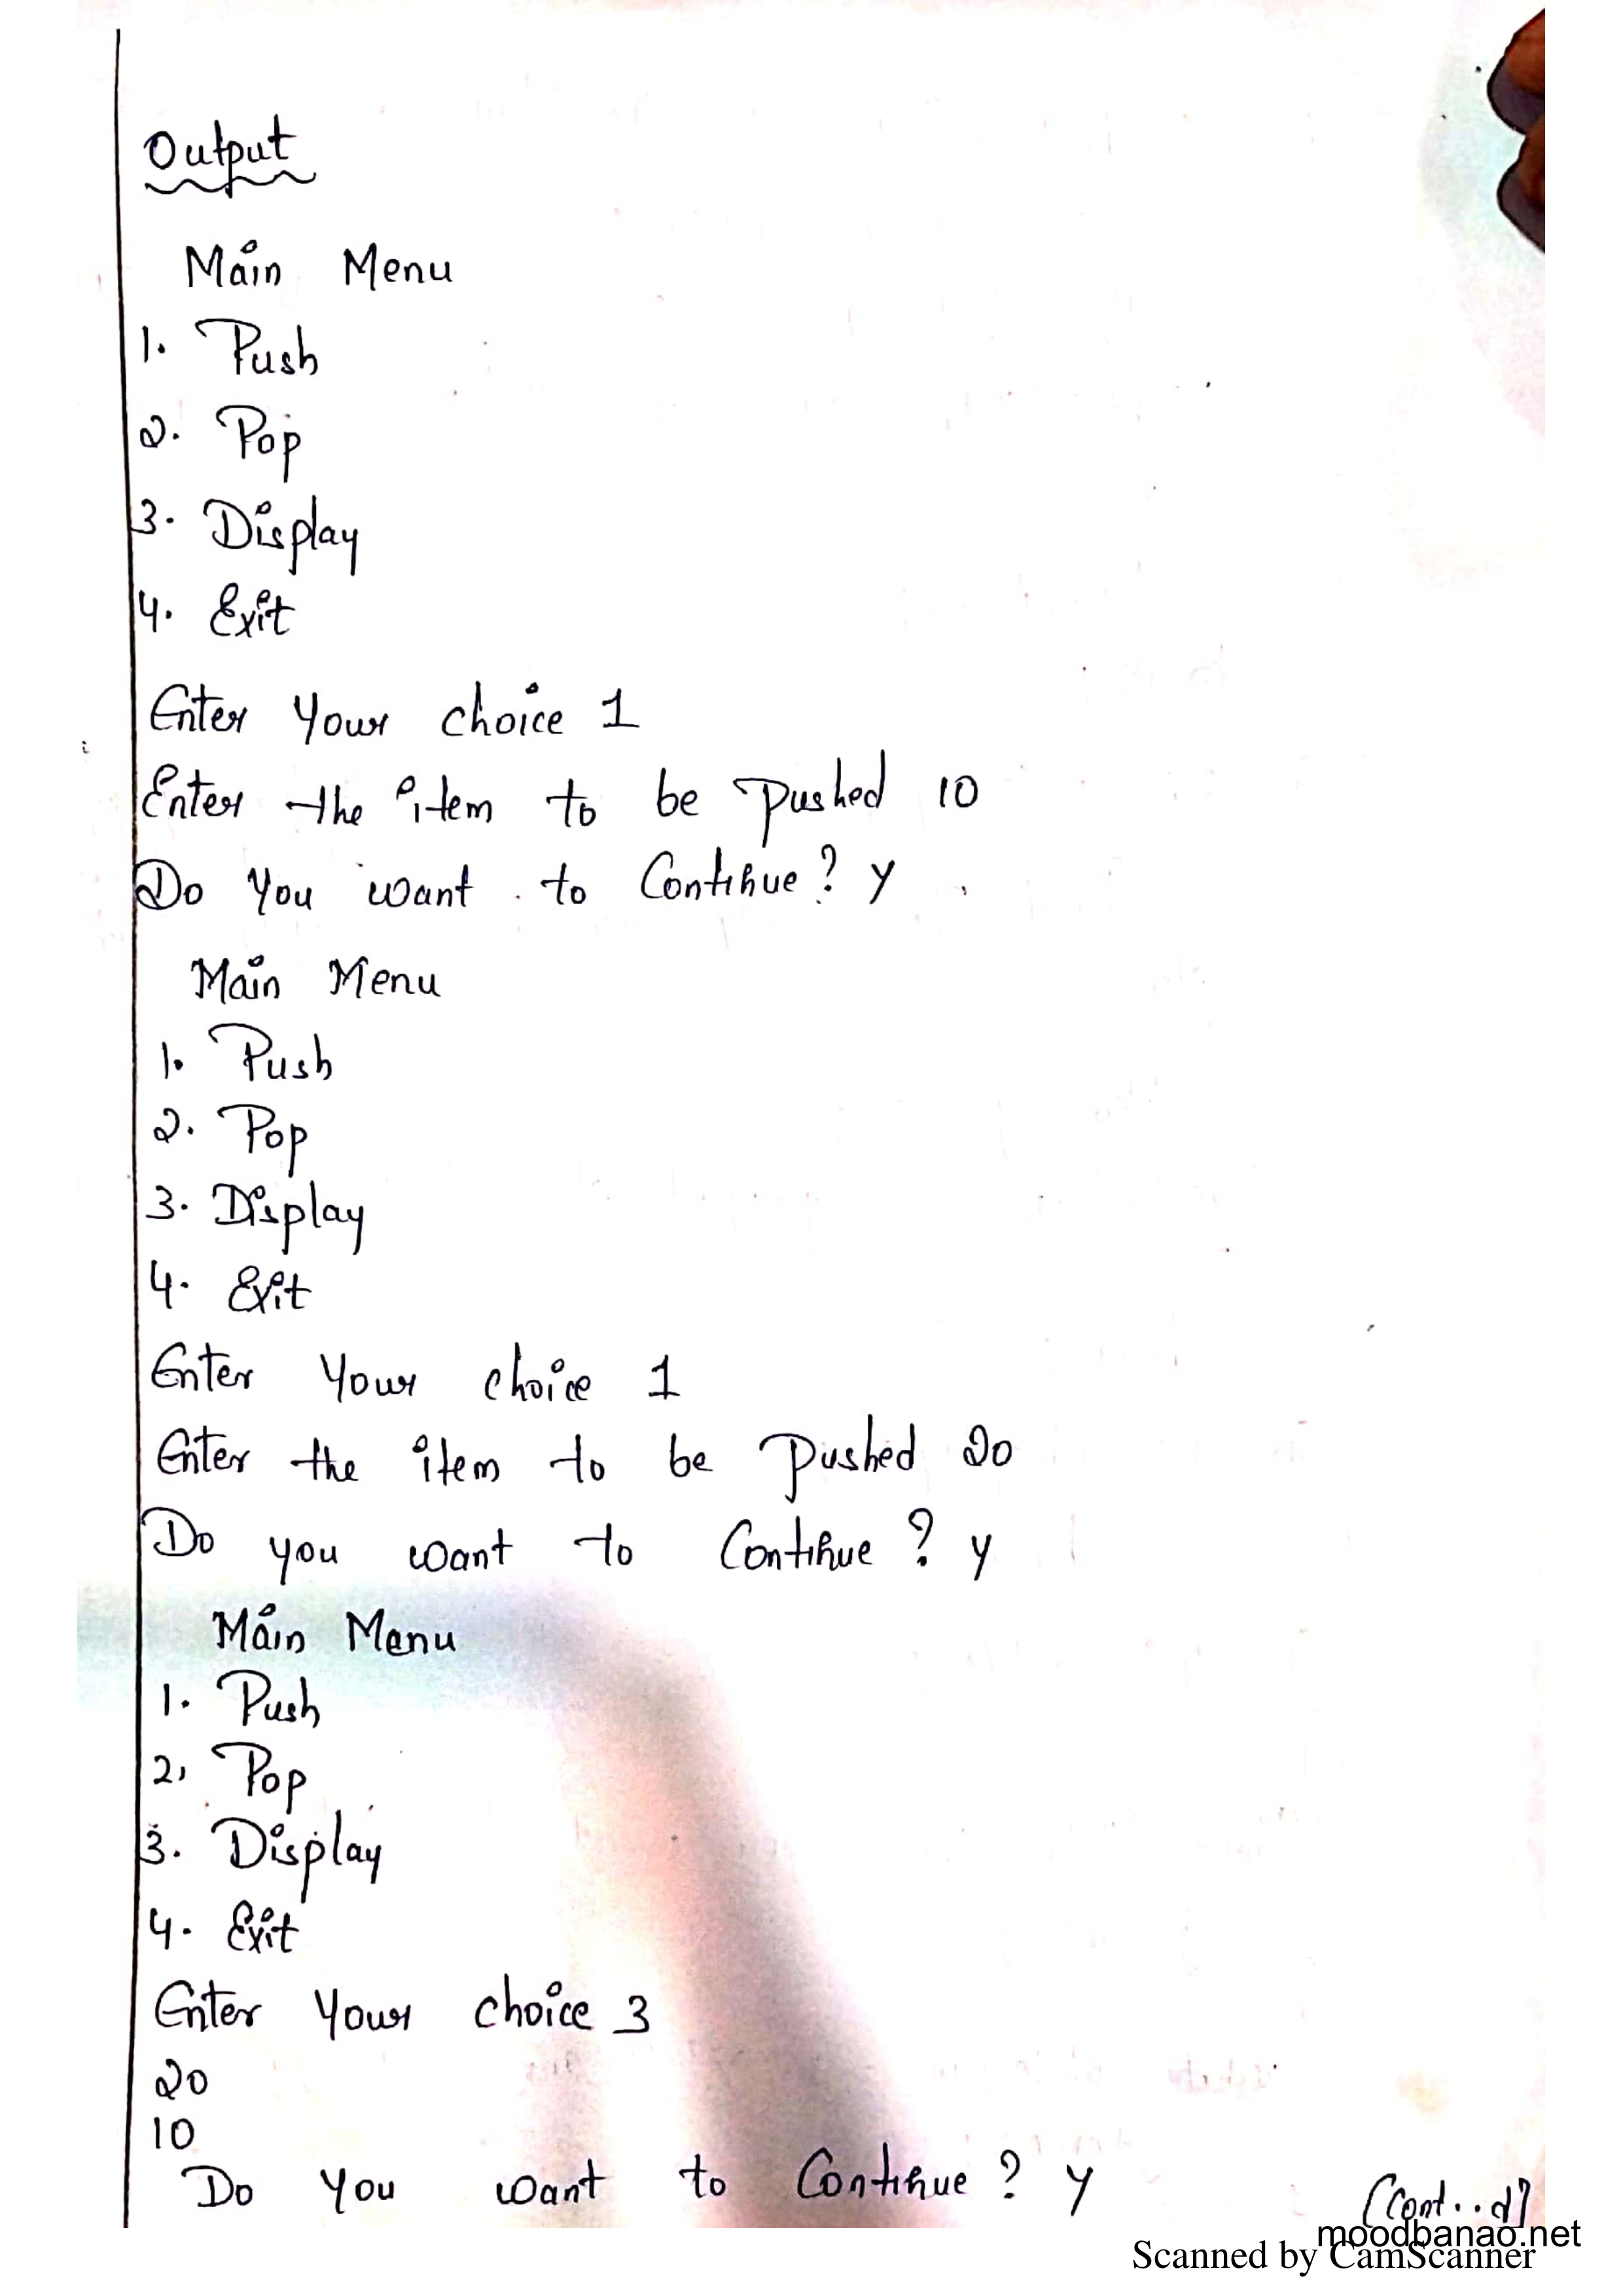 Output
Main Menu
1. Push
2. Pop
3. Display
4. Exit
Enter your choice 1
Enter the item to be pushed 10
Do you want to Continue? y
Main Menu
1. Push
2. Pop
3. Display
4. Exit
Enter your choice 1
Enter the item to be pushed 20
Do you want to Continue? y
Main Menu
1. Push
2, Pop
3. Display
4. Exit
Enter your choice 3
20
10
Do you want to Continue? y
(Cont..d)
moodbanao.net
Scanned by CamScanner